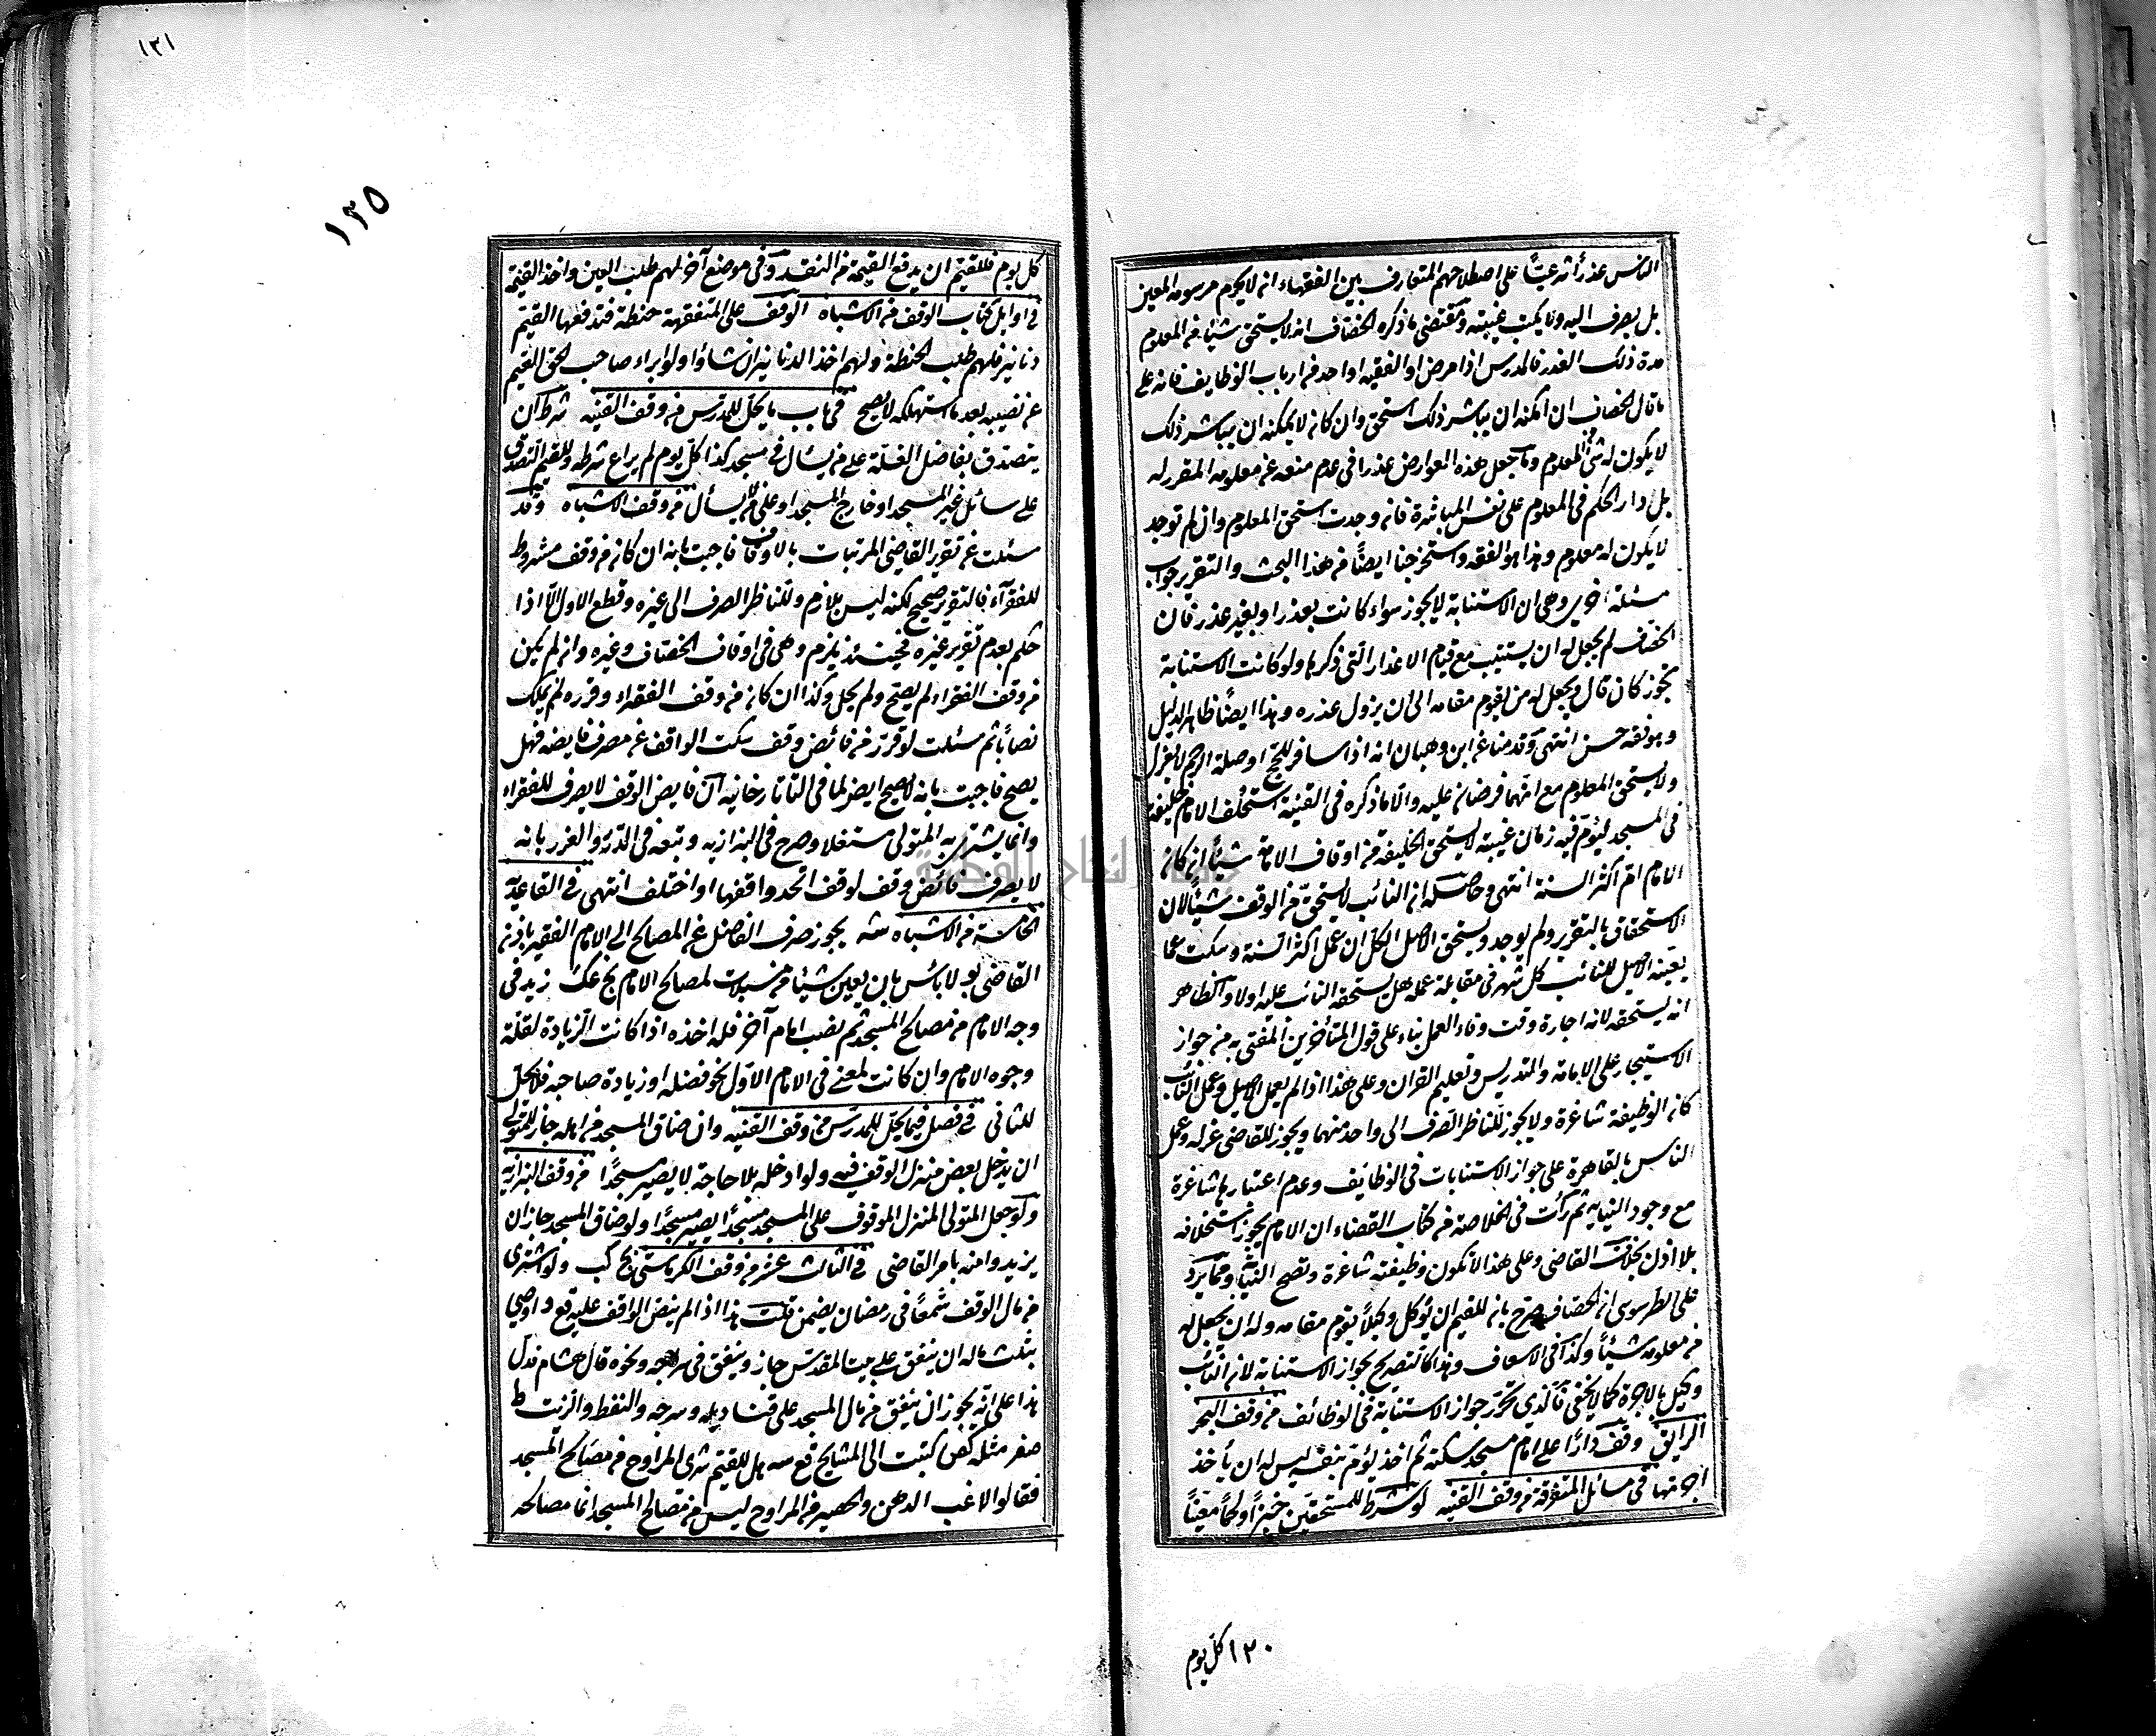 الناس عذرا شرعيًا على اصطلاحهم المتعارف بين الفقهاء انه لا يحرم مرسومه المعين
بل يصرف اليه ولا يكتب غيبته ومقتضى ما ذكره الخصاف انه لا يستحق شيئا من المعلوم
مدة ذلك العذر فالمدرس اذا مرض او الفقيه او احد من ارباب الوظايف فانه على
ما قال الخصاف ان امكنه ان يباشر ذلك استحق وان كان لا يمكنه ان يباشر ذلك
لا يكون له شئ من المعلوم وما جعل هذه العوارض عذرا في عدم منعه عن معلومه المقرر له
بل دار الحكم في المعلوم على نفس المباشرة فان وجدت استحق المعلوم وان لم توجد
لا يكون له معلوم وهذا هو الفقه واستخرجنا ايضًا من هذا البحث والتقرير جواب
مسئلة اخرى وهي ان الاستنابة لا يجوز سواء كانت بعذر او بغير عذر فان
الخصاف لم يجعل له ان يستنيب مع قيام الاعذار التي ذكرها ولو كانت الاستنابة
تجوز كان قال ويجعل له من يقوم مقامه الى ان يزول عذره وهذا ايضًا ظاهر الدليل
وهو فقه حسن انتهى وقدمنا عن ابن وهبان انه اذا سافر للحج او صلة الرحم لا يعزل
ولا يستحق المعلوم مع انهما فرضان عليه والا ما ذكره في القنية استخلف الامام خليفة
في المسجد ليؤم فيه زمان غيبته لا يستحق الخليفة من اوقاف الامامة شيئا ان كان
الامام امّ اكثر السنة انتهى وحاصله ان النائب لا يستحق من الوقف شيئًا لان
الاستحقاق بالتقرير ولم يوجد ويستحق الاصل الكل ان عمل اكثر السنة وسكت عما
يعينه الاصيل للنائب كل شهر في مقابلة عمله هل يستحقه النائب عليه اولا والظاهر
انه يستحقه لانه اجارة وقت وفاء العمل بناء على قول المتأخرين المفتى به من جواز
الاستيجار على الامامة والتدريس وتعليم القران وعلى هذا اذا لم يعمل الاصيل وعمل النائب
كانه الوظيفة شاغرة ولا يجوز للناظر الصرف الى واحد منهما ويجوز للقاضي عزله وعمل
الناس بالقاهرة على جواز الاستنابات في الوظائف وعدم اعتبارها شاغرة
مع وجود النيابة ثم رأت في الخلاصة من كتاب القضاء ان الامام يجوز استخلافه
بلا اذن بخلاف القاضي وعلى هذا لا تكون وظيفته شاغرة وتصح النيابة ومما يرد
على الطرسوسى ان الخصاف صرح بان للقيم ان يوكل وكيلاً يقوم مقامه وله ان يجعل له
من معلومه شيئًا وكذا في الاسعاف وهذا كالتصريح بجواز الاستنابة لان النائب
وكيل بالاجرة كما لا يخفى فالذي تحرر جواز الاستنابة في الوظائف من وقف البحر
الرايق وقف دارًا على امام مسجد يسكنه ثم اخذ يؤم بنفسه ليس له ان يأخذ
اجرتها في مسائل المتفرقة من وقف القنيه لو شرط للمستحقين خبزًا او لحمًا معينًا
١٣٠ كل يوم
١٣١
١٣٥
كل يوم فللقيم ان يدفع القيمة من النقد وفي موضع آخر لهم طلب العين واخذ القيمة
في اوايل كتاب الوقف من الاشباه الوقف على المتفقهة حنطة فتدفعها القيم
دنانير فلهم طلب الحنطة ولهم اخذ الدنانير ان شاؤا ولو ابراء صاحب الحق القيم
عن نصيبه بعد ما استهلكه لا يصح في باب ما يحل للمدرس من وقف القنيه شرط ان
يتصدق بفاضل الغلة على من يسأل في مسجد كذا كل يوم لم يراع شرطه وللقيم التصدق
على سائل غير المسجد او خارج المسجد او على من لا يسأل من وقف الاشباه وقد
سئلت عن تقرير القاضي المرتبات بالاوقاف فاجبت بانه ان كان من وقف مشروط
للفقرآء فالتقرير صحيح لكنه ليس بلازم وللناظر الصرف الى غيره وقطع الاول الا اذا
حكم بعدم تقرير غيره فحينئذ يلزم وهي في اوقاف الخصاف وغيره وان لم يكن
من وقف الفقراء لم يصح ولم يحل وكذا ان كان من وقف الفقراء وقرره لمن يملك
نصابًا ثم سئلت لو قرر من فائض وقف سكت الواقف عن مصرف فايضه فهل
يصح فاجبت بانه لا يصح ايضا لما في التاتارخانيه ان فايض الوقف لا يصرف للفقراء
وانما يشتري به المتولى مستغلا وصرح في البزازيه وتبعه في الدرر والغرر بانه
لا يصرف فائض وقف لوقف اتحد واقفهما او اختلف انتهى في القاعدة
الخامسة من الاشباه شه يجوز صرف الفاضل عن المصالح الى الامام الفقير باذن
القاضي بو لا بأس بان يعين شيئا من مسبلات لمصالح الامام بج عك زيد في
وجه الامام من مصالح المسجد ثم نصب امام آخر فله اخذه اذا كانت الزيادة لقلة
وجوه الامام وان كانت لمعنى في الامام الاول نحو فضله او زيادة صاحبه فلا يحل
للثانى في فصل فيما يحل للمدرس من وقف القنيه وان ضاق المسجد من اهله جاز للمتولى
ان يدخل بعض منزل الوقف فيه ولو ادخله بلا حاجة لا يصير مسجدًا من وقف البزازيه
ولو جعل المتولى المنزل الموقوف على المسجد مسجدًا يصير مسجدًا ولو ضاق المسجد جاز ان
يزيدوا منه بامر القاضي في الثالث عشر من وقف الكردستى بخ كب ولو اشترى
من مال الوقف شمعًا في رمضان يضمن قلت هذا اذا لم ينص الواقف عليه قع واوصى
بثلث ماله ان ينفق على بيت المقدس جاز وينفق في سراجه ونحوه قال هشام فدل
هذا على انه يجوز ان ينفق من مال المسجد على قناديله وسرجه والنفط والزيت ط
صغر مثله كص كتبت الى المشايخ قع سه هل للقيم شرى المراوح من مصالح المسجد
فقالوا لا عب الدهن والحصير والمراوح ليس من مصالح المسجد انما مصالحه